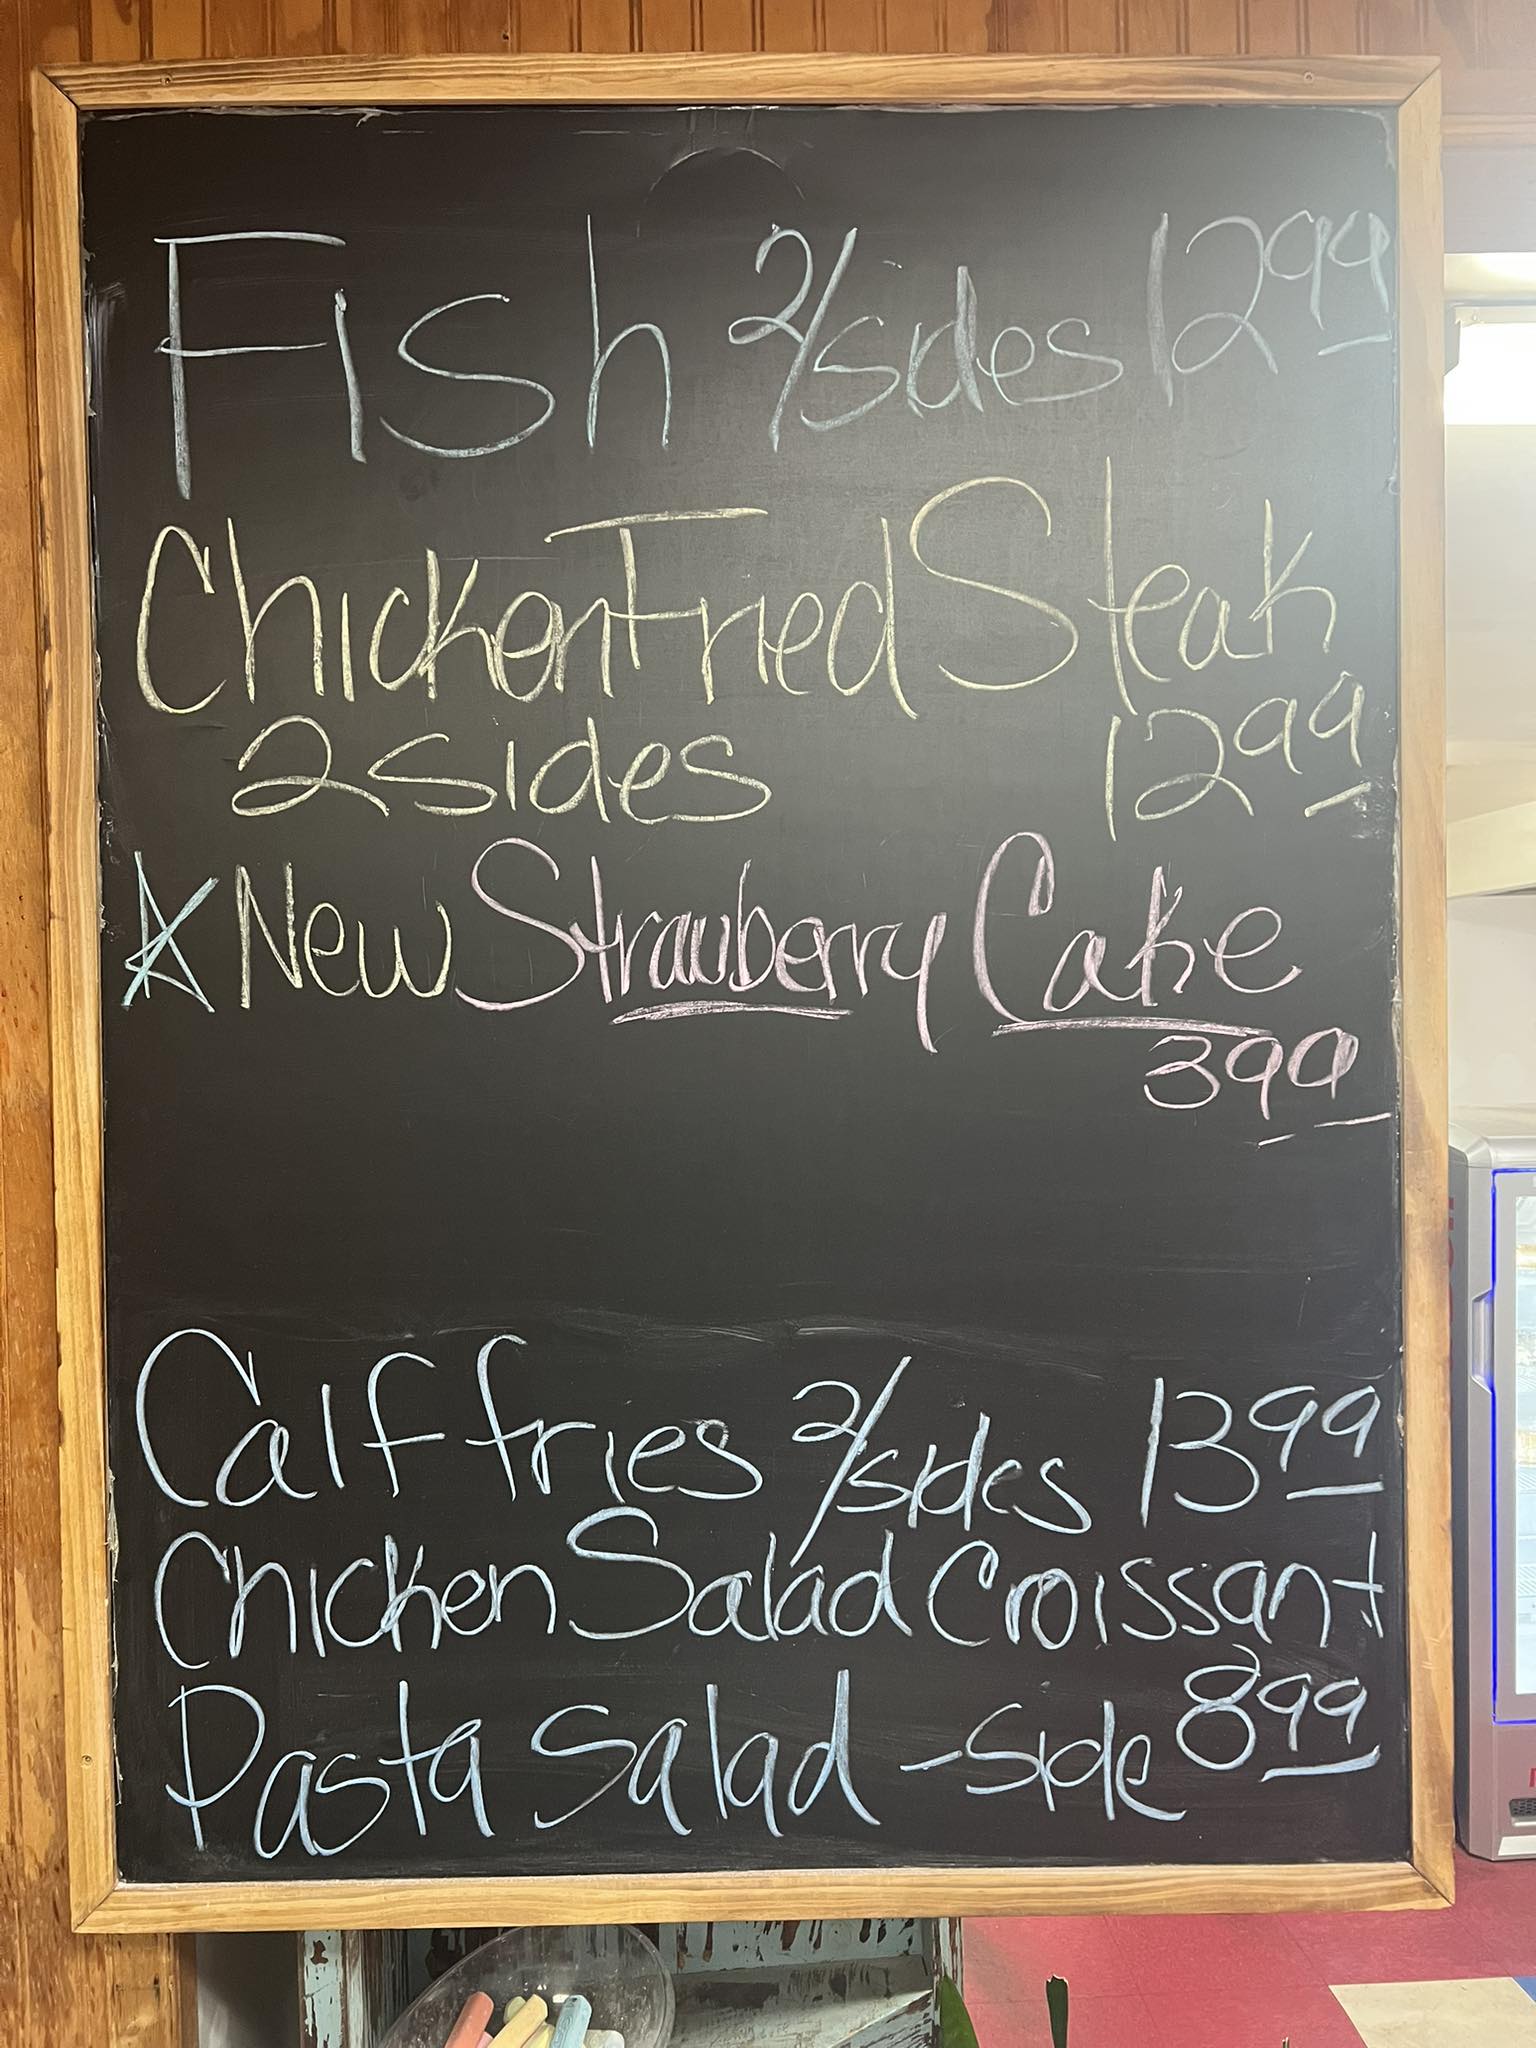 Fish 2/sides 12 99
Chicken Fried Steak
2 sides 12 99
New Strawberry Cake
3 99
Calf fries 2/sides 13 99
Chicken Salad Croissant
Pasta Salad - side 8 99